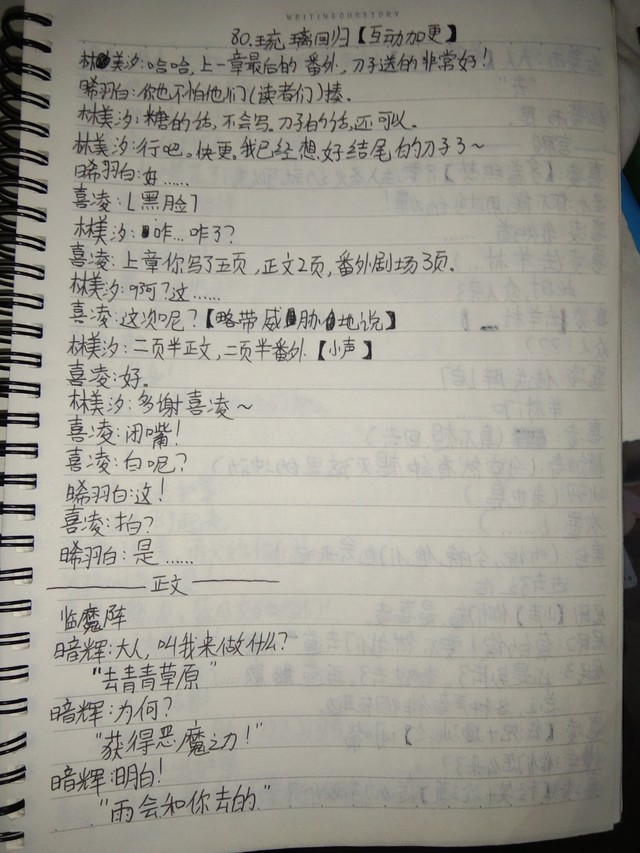 WRITINGOURSTORY
80.琉璃回归【互动加更】
林美汐:哈哈,上一章最后的番外,刀子送的非常好!
晞羽白:你也不怕他们(读者们)揍。
林美汐:糖的话,不会写。刀子的话,还可以。
林美汐:行吧。快更。我已经想好结尾的刀子了~
晞羽白:好……
喜凌:[黑脸]
林美汐:咋…咋了?
喜凌:上章你写了五页,正文2页,番外剧场3页。
林美汐:啊?这……
喜凌:这次呢?【略带威胁地说】
林美汐:二页半正文,二页半番外【小声】
喜凌:好。
林美汐:多谢喜凌~
喜凌:闭嘴!
喜凌:白呢?
晞羽白:这!
喜凌:拍?
晞羽白:是……
——正文——
监魔阵
暗辉:大人,叫我来做什么?
"去青青草原"
暗辉:为何?
"获得恶魔之力!"
暗辉:明白!
"雨会和你去的"